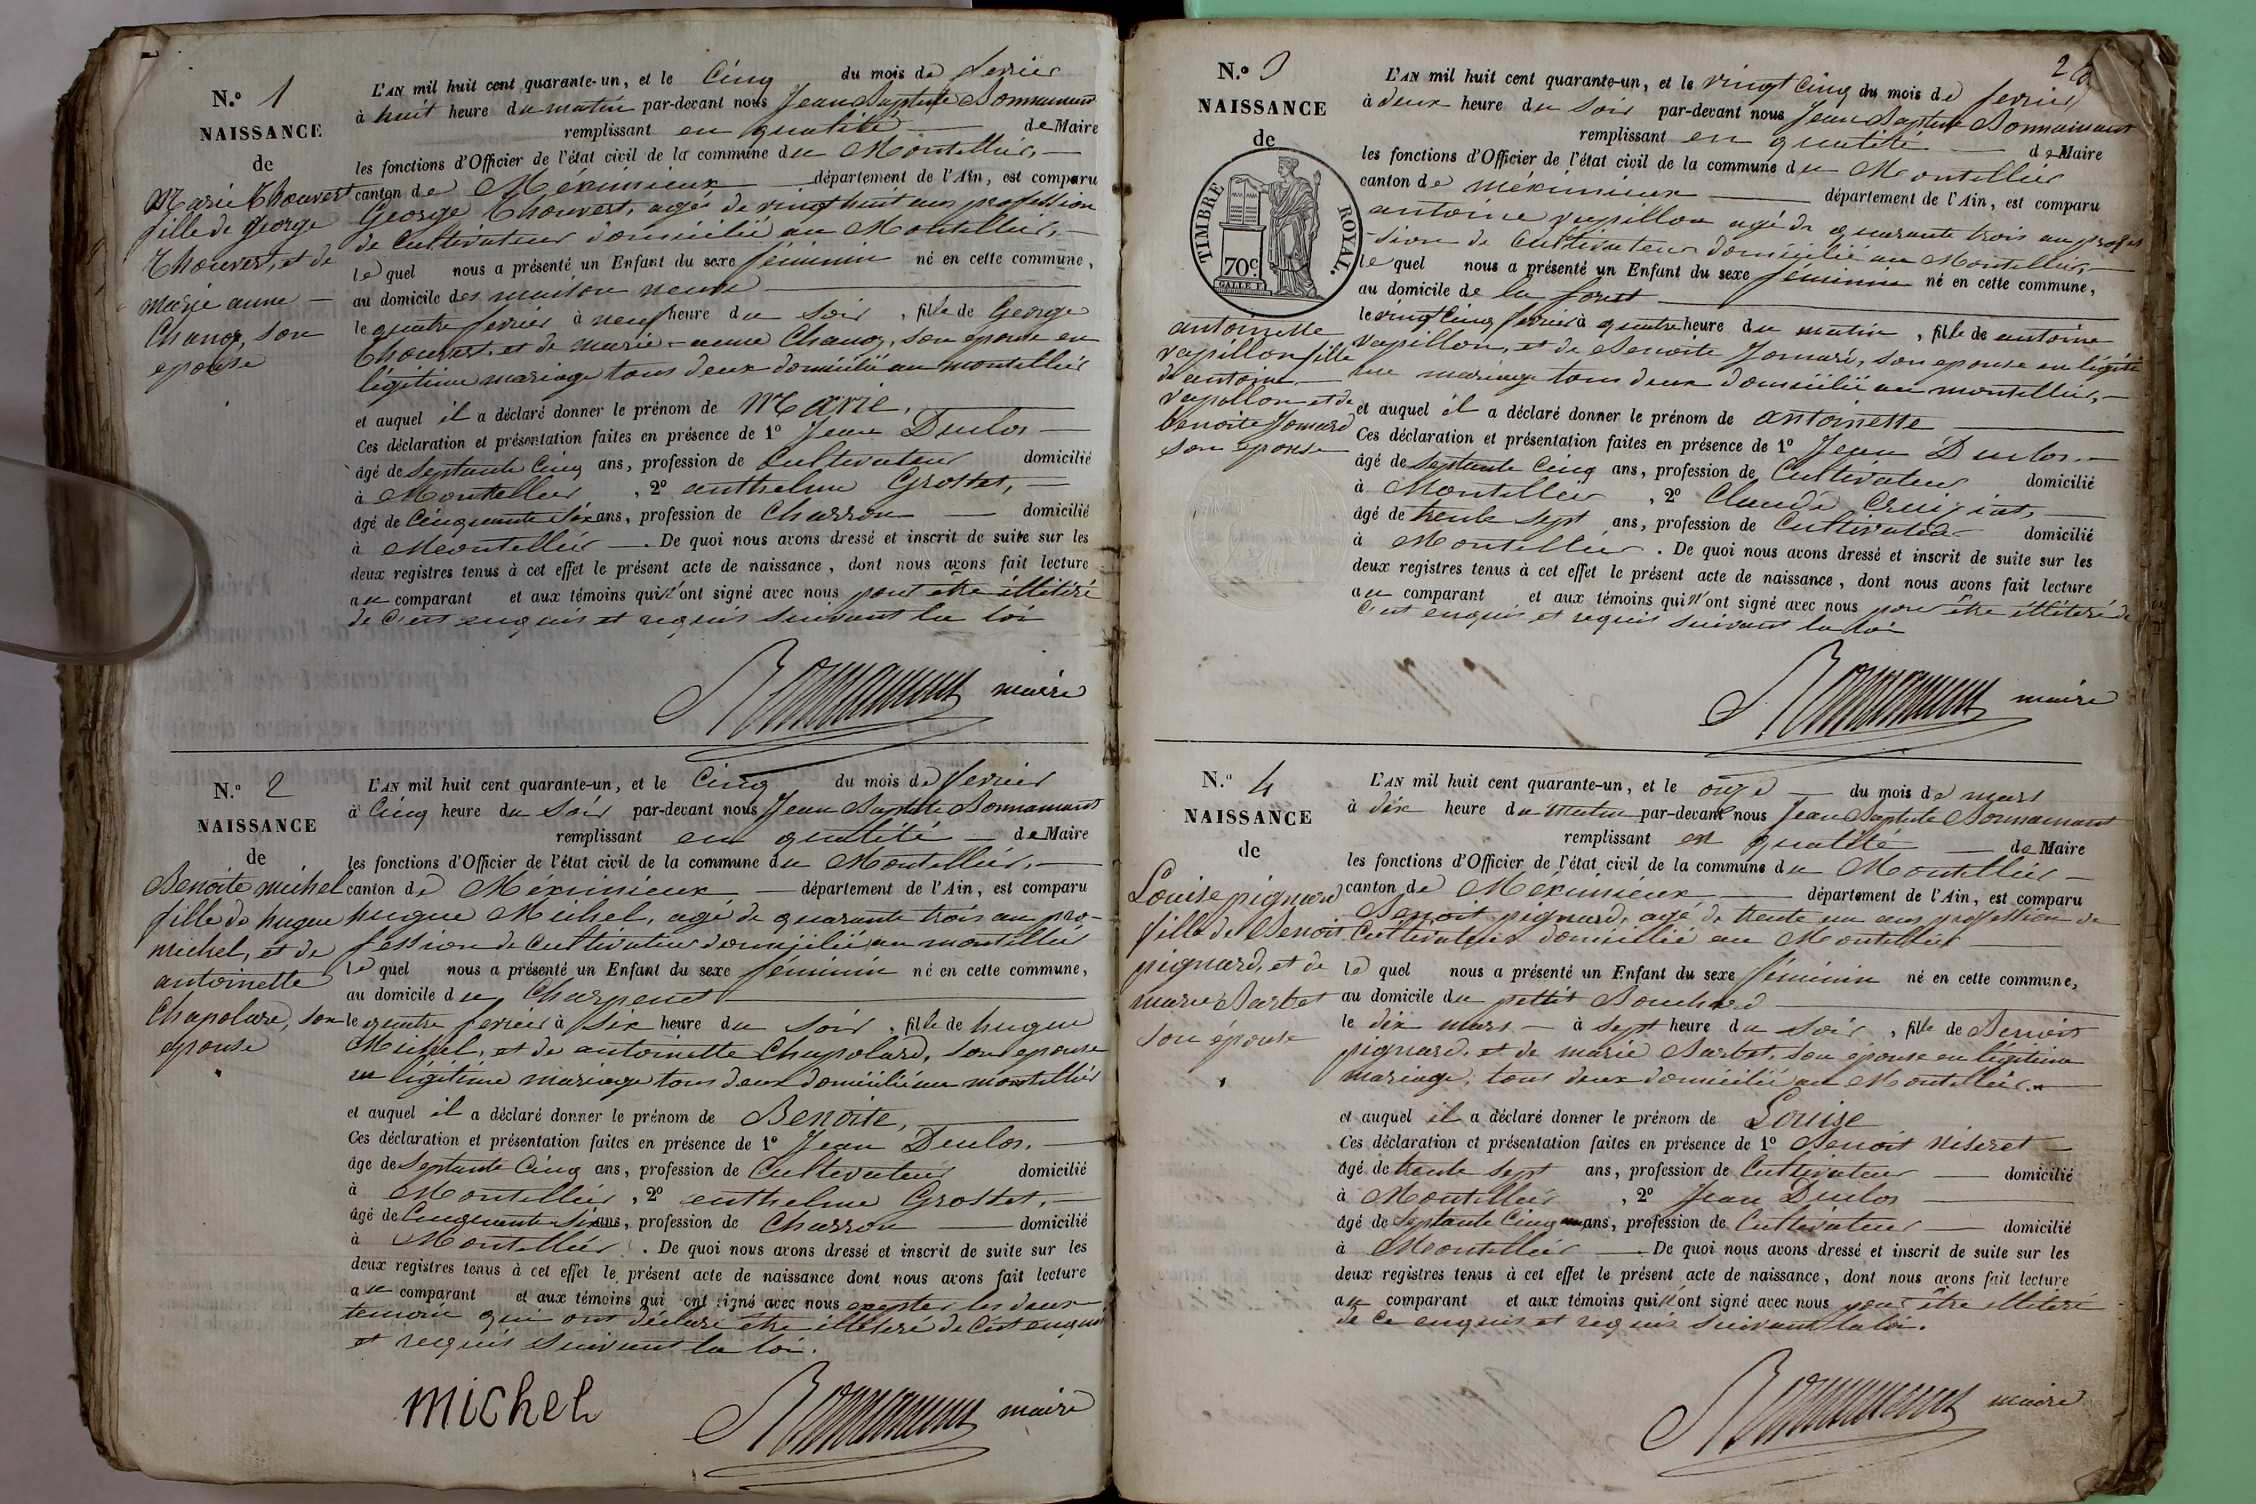 N.º 1
NAISSANCE
de
Marie Thouvert
fille de george
Thouvert, et de
marie anne
Chanoz, son
epouse
L'AN mil huit cent quarante-un, et le Cinq du mois de fevrier
à huit heure du matin par-devant nous Jean Baptiste Bonnamant
remplissant en qualité de Maire
les fonctions d'Officier de l'état civil de la commune du Montellier,
canton de Méximieux département de l'Ain, est comparu
George Thouvert, agé de vingt huit ans profession
de Cultivateur domicilié au Montellier,
le quel nous a présenté un Enfant du sexe féminin né en cette commune,
au domicile des maison neuve
le quatre fevrier à neuf heure du soir, fille de George
Thouvert, et de marie-anne Chanoz, son epouse en
légitime mariage tous deux domicilié au montellier
et auquel il a déclaré donner le prénom de Marie,
Ces déclaration et présentation faites en présence de 1º Jean Duclos
âgé de septante Cinq ans, profession de Cultivateur domicilié
à Montellier, 2º anthelme Grostet,
âgé de Cinquante six ans, profession de Charron domicilié
à Montellier. De quoi nous avons dressé et inscrit de suite sur les
deux registres tenus à cet effet le présent acte de naissance, dont nous avons fait lecture
au comparant et aux témoins qui n'ont signé avec nous pour être illitéré
de C'est enquis et requis suivant la loi
Bonnamant maire
N.º 2
NAISSANCE
de
Benoite michel
fille de hugue
michel, et de
antoinette
Chapolard, son
epouse
L'AN mil huit cent quarante-un, et le Cinq du mois de fevrier
à Cinq heure du Soir par-devant nous Jean Baptiste Bonnamant
remplissant en qualité de Maire
les fonctions d'Officier de l'état civil de la commune du Montellier,
canton de Méximieux département de l'Ain, est comparu
hugue Michel, agé de quarante trois an pro-
fession de Cultivateur domicilié au montellier
le quel nous a présenté un Enfant du sexe féminin né en cette commune,
au domicile du Charpenet
le quatre fevrier à six heure du soir, fille de hugue
Michel, et de antoinette Chapolard, son epouse
en légitime mariage tous deux domicilié au montellier
et auquel il a déclaré donner le prénom de Benoite,
Ces déclaration et présentation faites en présence de 1º Jean Duclos,
âge de Septante Cinq ans, profession de Cultivateur domicilié
à Montellier, 2º enthelme Grostet,
âgé de Cinquante six ans, profession de Charron domicilié
à Montellier. De quoi nous avons dressé et inscrit de suite sur les
deux registres tenus à cet effet le présent acte de naissance dont nous avons fait lecture
au comparant et aux témoins qui ont signé avec nous excepter les deux
temoin qui ont déclaré être illitéré de C'est enquis
et requis suivant la loi.
michel
Bonnamant maire
2
N.º 3
NAISSANCE
de
TIMBRE ROYAL.
70c.
antoinette
vapillon fille
de antoine
vapillon et de
benoite Jomard
son épouse
L'AN mil huit cent quarante-un, et le vingt Cinq du mois de fevrier
à deux heure du soir par-devant nous Jean Baptiste Bonnamant
remplissant en qualité de Maire
les fonctions d'Officier de l'état civil de la commune du Montellier
canton de méximieux département de l'Ain, est comparu
antoine vapillon agé de quarante trois an profes
-sion de Cultivateur domicilié au Montellier,
le quel nous a présenté un Enfant du sexe féminin né en cette commune,
au domicile de la foret
le vingt Cinq fevrier à quatre heure du matin, fille de antoine
vapillon, et de Benoite Jomard, son epouse en légiti
me mariage tous deux domicilié au montellier,
et auquel il a déclaré donner le prénom de antoinette
Ces déclaration et présentation faites en présence de 1º Jean Duclos
âgé de septante cinq ans, profession de Cultivateur domicilié
à Montellier, 2º Claude Cruiziat,
âgé de trente sept ans, profession de Cultivateur domicilié
à Montellier. De quoi nous avons dressé et inscrit de suite sur les
deux registres tenus à cet effet le présent acte de naissance, dont nous avons fait lecture
au comparant et aux témoins qui n'ont signé avec nous pour être illiteré de
C'est enquis et requis suivant la loi
Bonnamant maire
N.º 4
NAISSANCE
de
Louise pignard
fille de Benoit
pignard, et de
marie Barbet
son épouse
L'AN mil huit cent quarante-un, et le onze du mois de mars
à dix heure du matin par-devant nous Jean Baptiste Bonnamant
remplissant en qualité de Maire
les fonctions d'Officier de l'état civil de la commune du Montellier
canton de Méximieux département de l'Ain, est comparu
Benoit pignard, agé de trente un ans profession de
Cultivateur domicilié au Montellier
le quel nous a présenté un Enfant du sexe féminin né en cette commune,
au domicile du pettit Bouchard
le dix mars à sept heure du soir, fille de Benoit
pignard, et de marie Barbet, son épouse en légitime
mariage, tous deux domicilié au Montellier.
et auquel il a déclaré donner le prénom de Louise
Ces déclaration et présentation faites en présence de 1º Benoit Niseret
âgé de trente sept ans, profession de Cultivateur domicilié
à Montellier, 2º Jean Duclos
âgé de septante Cinq ans, profession de Cultivateur domicilié
à Montellier De quoi nous avons dressé et inscrit de suite sur les
deux registres tenus à cet effet le présent acte de naissance, dont nous avons fait lecture
au comparant et aux témoins qui n'ont signé avec nous pour être illitéré
de Ce enquis et requis suivant la loi.
Bonnamant maire